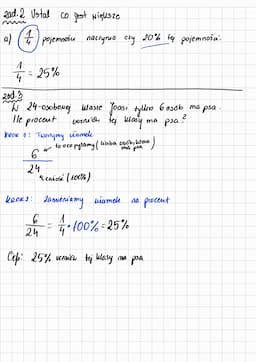 zad.2 Ustal co jest większe
a) 1/4 pojemności naczynia czy 20% tej pojemności.
1/4 = 25%
zad.3
W 24-osobowej klasie Joasi tylko 6 osób ma psa.
Ile procent uczniów tej klasy ma psa?
krok 1: Tworzymy ułamek
6 ← to o co pytamy (liczba osób, które mają psa)
24 ← całość (100%)
krok 2: Zamieniamy ułamek na procent
6/24 = 1/4 · 100% = 25%
Odp: 25% uczniów tej klasy ma psa